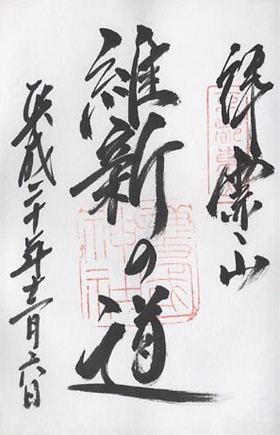 山
維新の道
平成二十年十二月六日